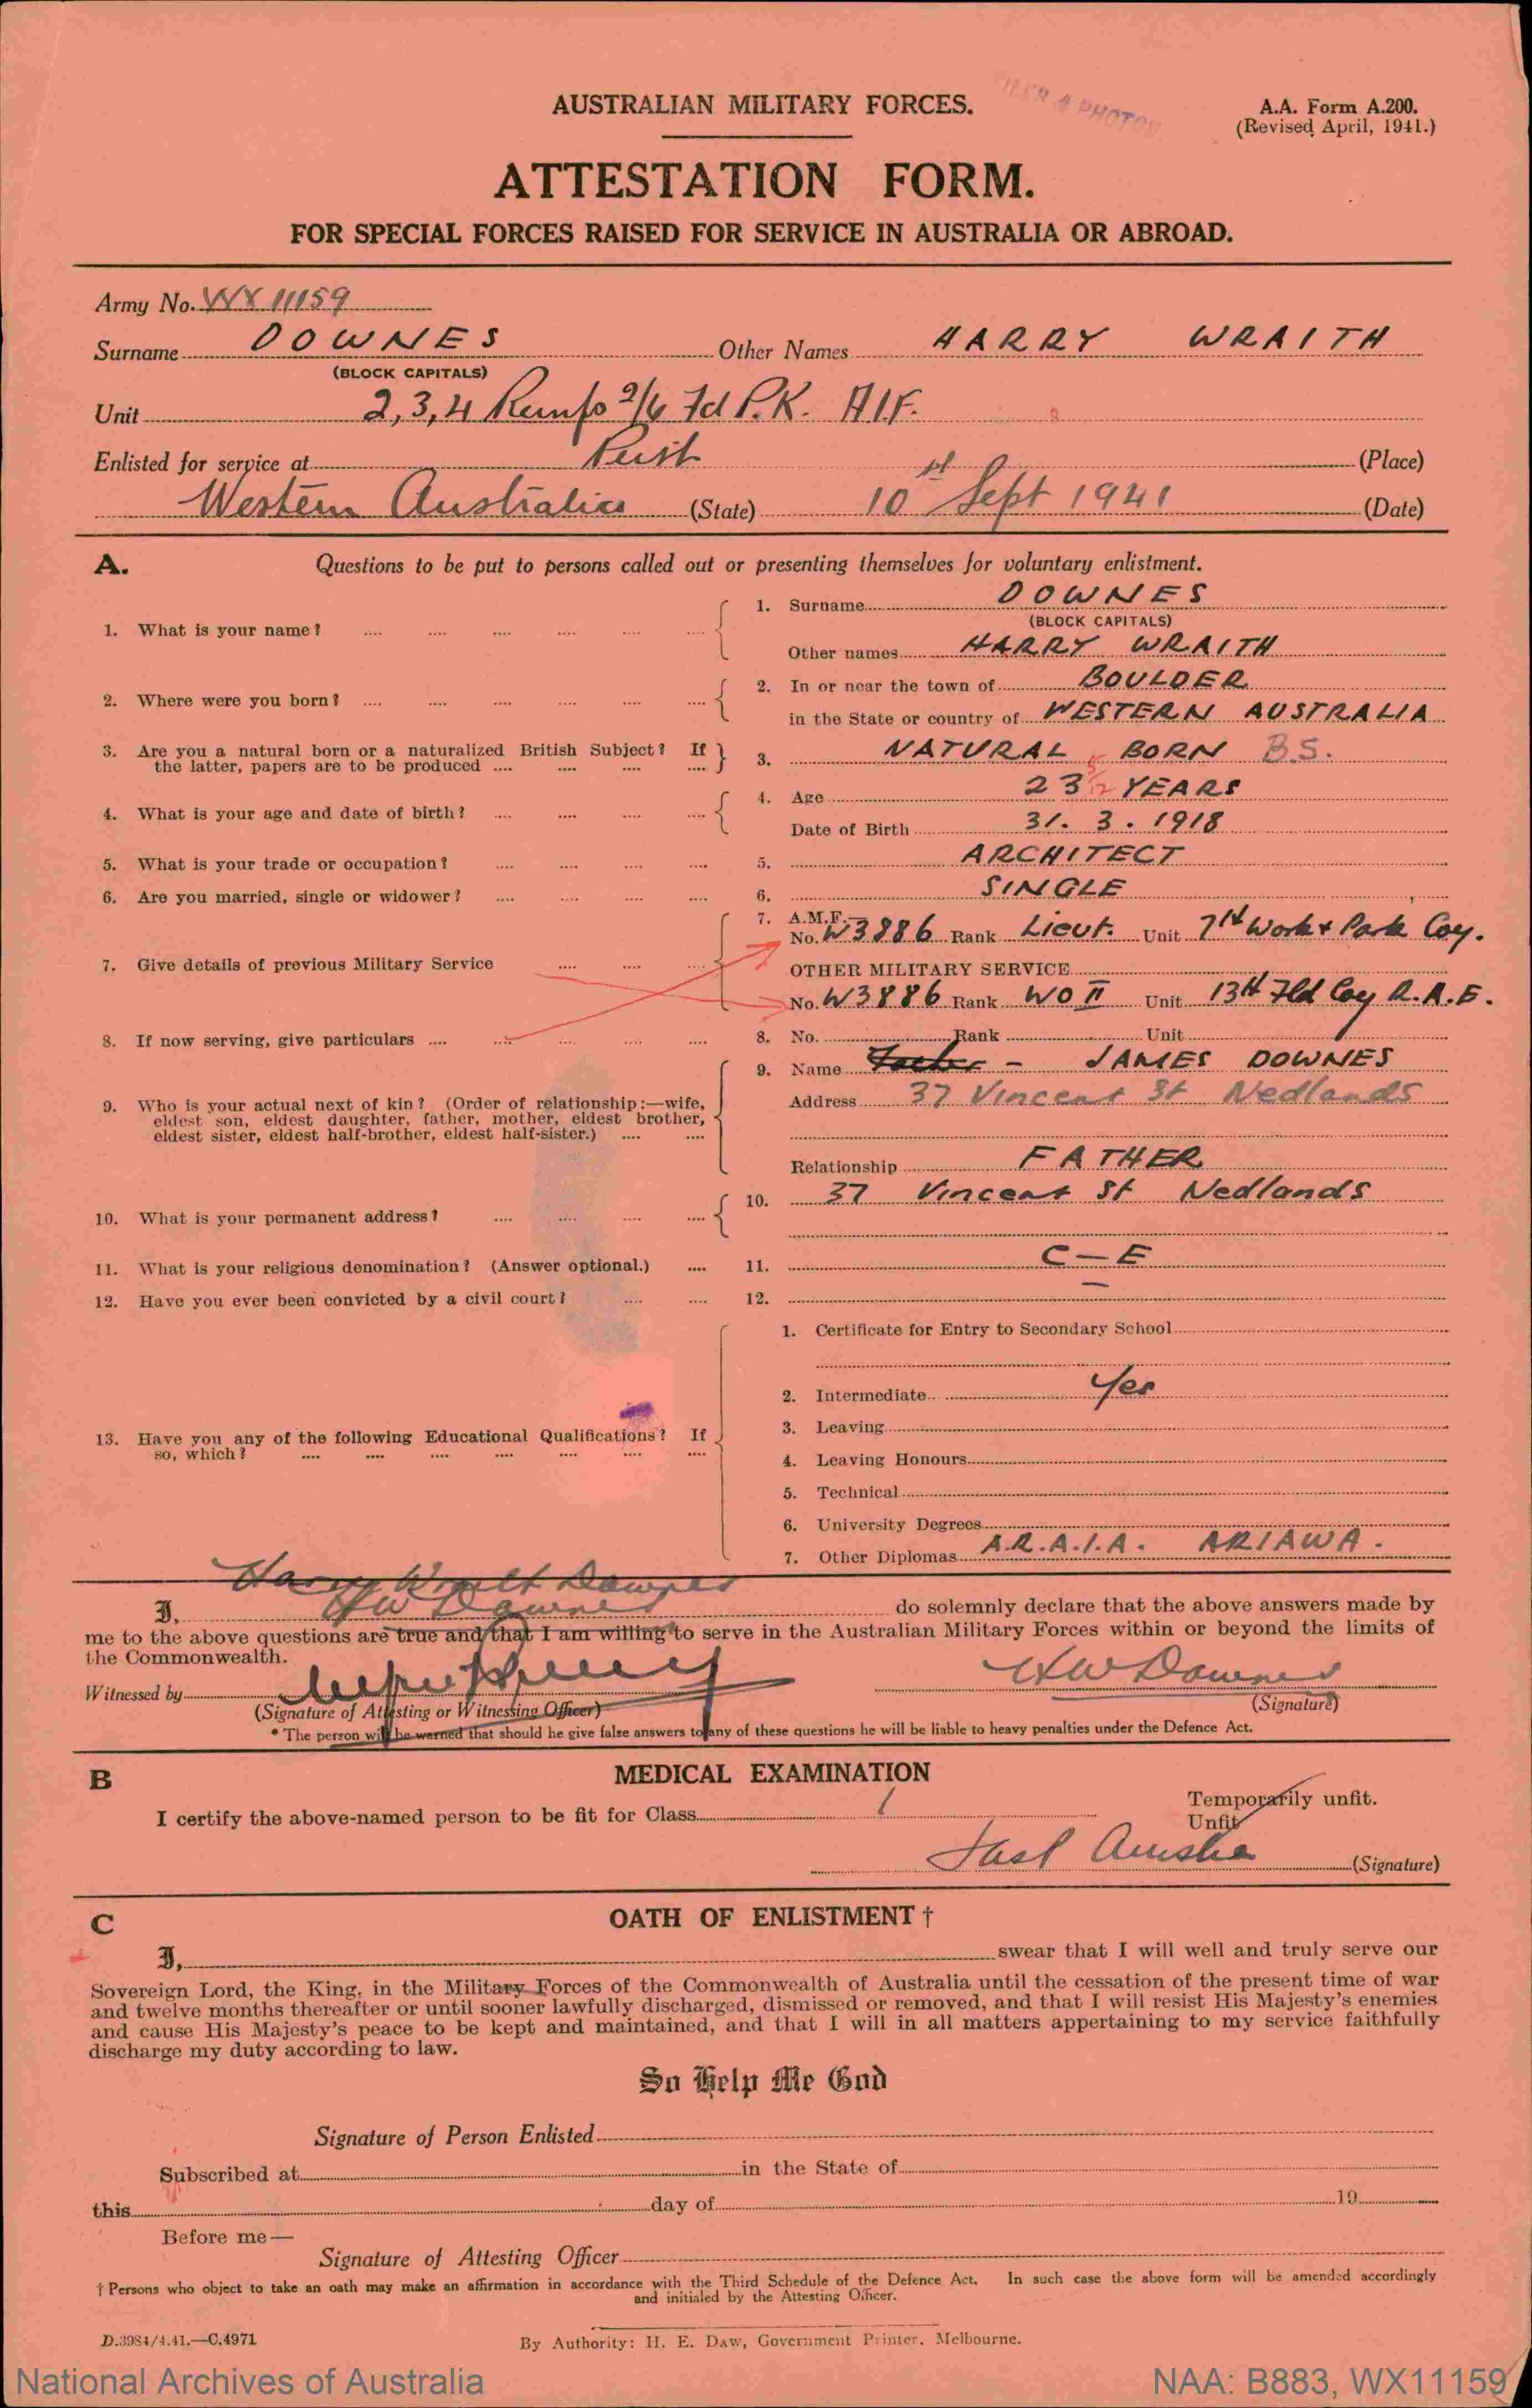 AUSTRALIAN MILITARY FORCES.
A.A. Form A.200.
(Revised April, 1941.)
ATTESTATION FORM.
FOR SPECIAL FORCES RAISED FOR SERVICE IN AUSTRALIA OR ABROAD.
Army No. WX 11159
Surname DOWNES Other Names HARRY WRAITH
(BLOCK CAPITALS)
Unit 2,3,4 Reinfs 2/6 Fd P.K. AIF.
Enlisted for service at (Place)
Western Australia (State) 10 Sept 1941 (Date)
A. Questions to be put to persons called out or presenting themselves for voluntary enlistment.
1. What is your name? 1. Surname DOWNES
(BLOCK CAPITALS)
Other names HARRY WRAITH
2. Where were you born? 2. In or near the town of BOULDER
in the State or country of WESTERN AUSTRALIA
3. Are you a natural born or a naturalized British Subject? If
the latter, papers are to be produced 3. NATURAL BORN B.S.
4. What is your age and date of birth? 4. Age 23 YEARS
Date of Birth 31. 3. 1918
5. What is your trade or occupation? 5. ARCHITECT
6. Are you married, single or widower? 6. SINGLE
7. Give details of previous Military Service 7. A.M.F.
No. W3886 Rank Lieut. Unit 7th Work & Park Coy.
OTHER MILITARY SERVICE
No. W3886 Rank WO II Unit 13th Fld Coy R.A.E.
8. If now serving, give particulars 8. No. Rank Unit
9. Who is your actual next of kin? (Order of relationship:—wife,
eldest son, eldest daughter, father, mother, eldest brother,
eldest sister, eldest half-brother, eldest half-sister.)
9. Name Father - JAMES DOWNES
Address 37 Vincent St Nedlands
Relationship FATHER
10. What is your permanent address? 10. 37 Vincent St Nedlands
11. What is your religious denomination? (Answer optional.) 11. C—E
12. Have you ever been convicted by a civil court? 12. —
13. Have you any of the following Educational Qualifications? If
so, which?
1. Certificate for Entry to Secondary School
2. Intermediate Yes
3. Leaving
4. Leaving Honours
5. Technical
6. University Degrees
7. Other Diplomas A.R.A.I.A. ARIAWA.
Harry Wraith Downes
I, HW Downes do solemnly declare that the above answers made by
me to the above questions are true and that I am willing to serve in the Australian Military Forces within or beyond the limits of
the Commonwealth.
Witnessed by HW Downes
(Signature of Attesting or Witnessing Officer) (Signature)
* The person will be warned that should he give false answers to any of these questions he will be liable to heavy penalties under the Defence Act.
B MEDICAL EXAMINATION
I certify the above-named person to be fit for Class 1 Temporarily unfit.
Unfit
(Signature)
C OATH OF ENLISTMENT †
I, swear that I will well and truly serve our
Sovereign Lord, the King, in the Military Forces of the Commonwealth of Australia until the cessation of the present time of war
and twelve months thereafter or until sooner lawfully discharged, dismissed or removed, and that I will resist His Majesty's enemies
and cause His Majesty's peace to be kept and maintained, and that I will in all matters appertaining to my service faithfully
discharge my duty according to law.
So Help Me God
Signature of Person Enlisted
Subscribed at in the State of
this day of 19
Before me—
Signature of Attesting Officer
† Persons who object to take an oath may make an affirmation in accordance with the Third Schedule of the Defence Act. In such case the above form will be amended accordingly
and initialed by the Attesting Officer.
D.3984/4.41.—C.4971
By Authority: H. E. Daw, Government Printer, Melbourne.
National Archives of Australia NAA: B883, WX11159